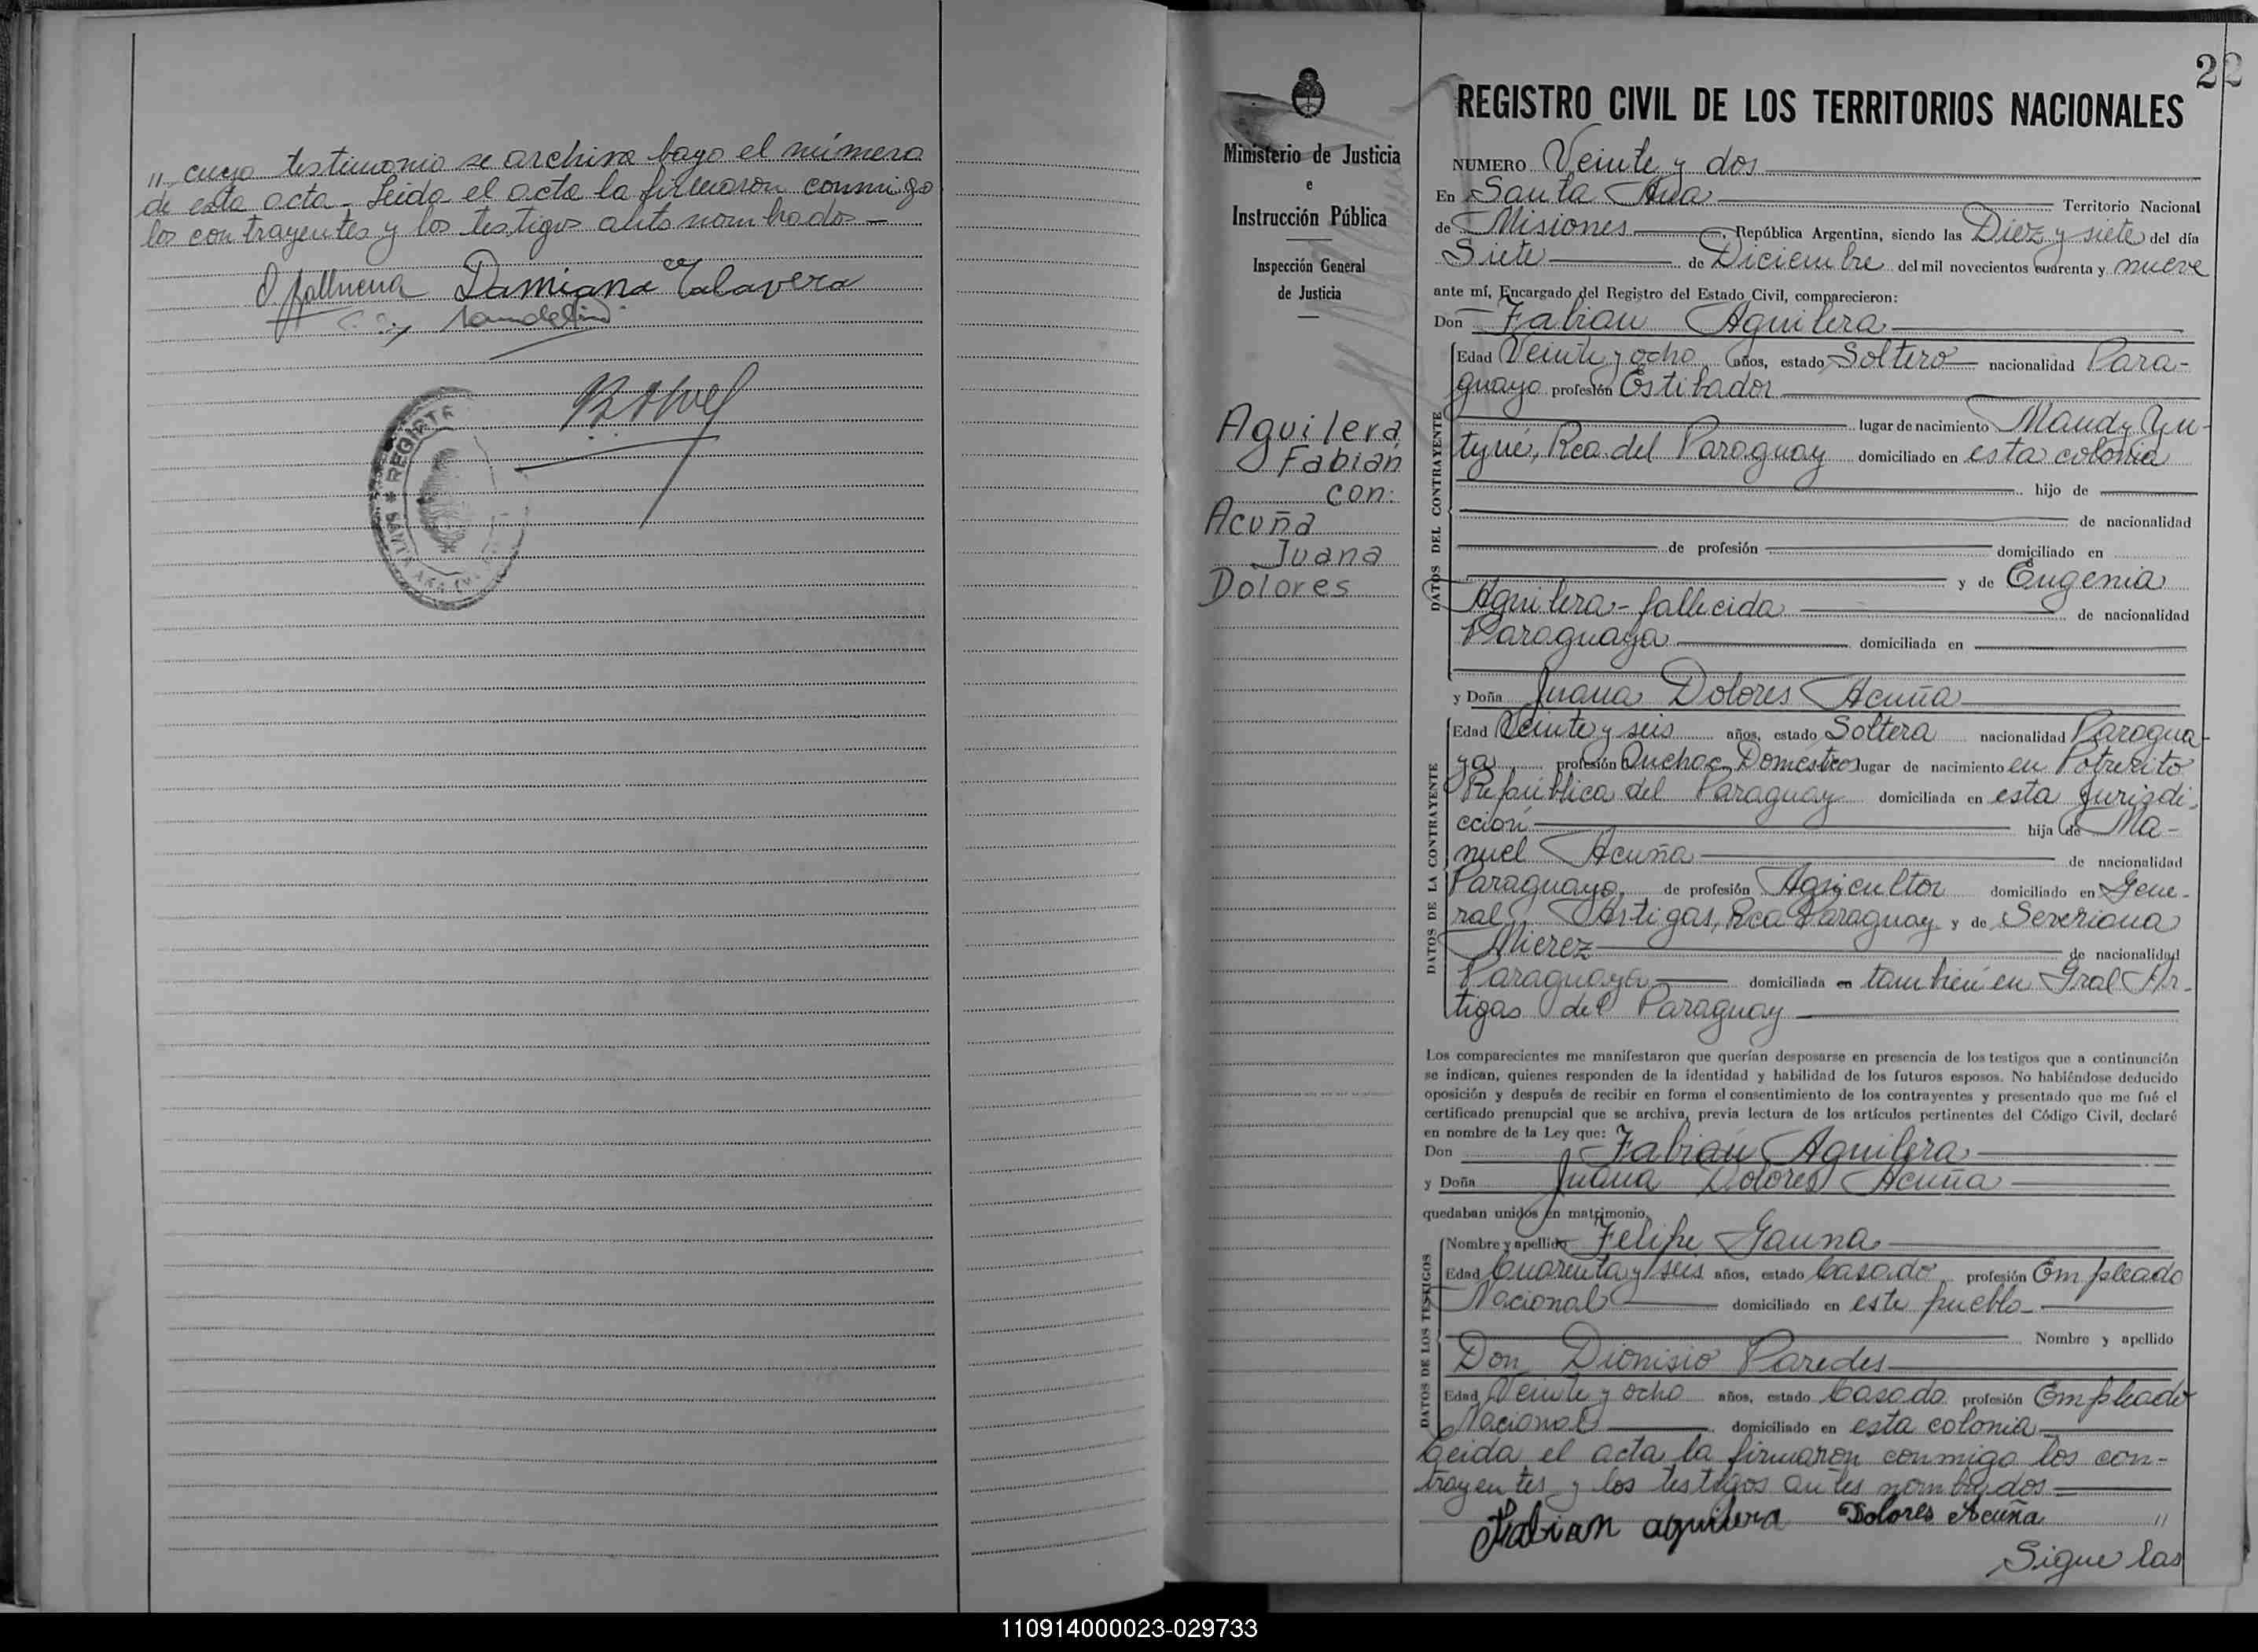 " cuyo testimonio se archiva bajo el número
de esta acta - Leida el acta la firmaron conmigo
los contrayentes y los testigos antes nombrados -
Damiana Talavera
REGISTR
SANTA ANA
22
REGISTRO CIVIL DE LOS TERRITORIOS NACIONALES
Ministerio de Justicia
e
Instrucción Pública
Inspección General
de Justicia
Aguilera
Fabian
con:
Acuña
Juana
Dolores
NUMERO Veinte y dos
En Santa Ana Territorio Nacional
de Misiones, República Argentina, siendo las Diez y siete del día
Siete de Diciembre del mil novecientos cuarenta y nueve
ante mí, Encargado del Registro del Estado Civil, comparecieron:
Don Fabian Aguilera
DATOS DEL CONTRAYENTE
Edad Veinte y ocho años, estado Soltero nacionalidad Para-
guayo profesión Estibador
lugar de nacimiento
Rca. del Paraguay domiciliado en esta colonia
hijo de
de nacionalidad
de profesión domiciliado en
y de Eugenia
Aguilera - fallecida de nacionalidad
Paraguaya domiciliada en
y Doña Juana Dolores Acuña
DATOS DE LA CONTRAYENTE
Edad Veinte y seis años, estado Soltera nacionalidad Paragua-
ya profesión Quehac. Domesticos lugar de nacimiento en Potrerito
República del Paraguay domiciliada en esta jurisdi-
cción hija de Ma-
nuel Acuña de nacionalidad
Paraguayo, de profesión Agricultor domiciliado en Gene-
ral Artigas, Rca Paraguay y de Severiana
Mierez de nacionalidad
Paraguaya domiciliada en tambien en Gral Ar-
tigas del Paraguay
Los comparecientes me manifestaron que querían desposarse en presencia de los testigos que a continuación
se indican, quienes responden de la identidad y habilidad de los futuros esposos. No habiéndose deducido
oposición y después de recibir en forma el consentimiento de los contrayentes y presentado que me fué el
certificado prenupcial que se archiva, previa lectura de los artículos pertinentes del Código Civil, declaré
en nombre de la Ley que:
Don Fabian Aguilera
y Doña Juana Dolores Acuña
quedaban unidos en matrimonio.
DATOS DE LOS TESTIGOS
Nombre y apellido Felipe Gauna
Edad Cuarenta y seis años, estado Casado profesión Empleado
Nacional domiciliado en este pueblo
Nombre y apellido
Don Dionisio Paredes
Edad Veinte y ocho años, estado Casado profesión Empleado
Nacional domiciliado en esta colonia
Leida el acta la firmaron conmigo los con-
trayentes y los testigos antes nombrados
Fabian aguilera Dolores Acuña "
Sigue las
110914000023-029733